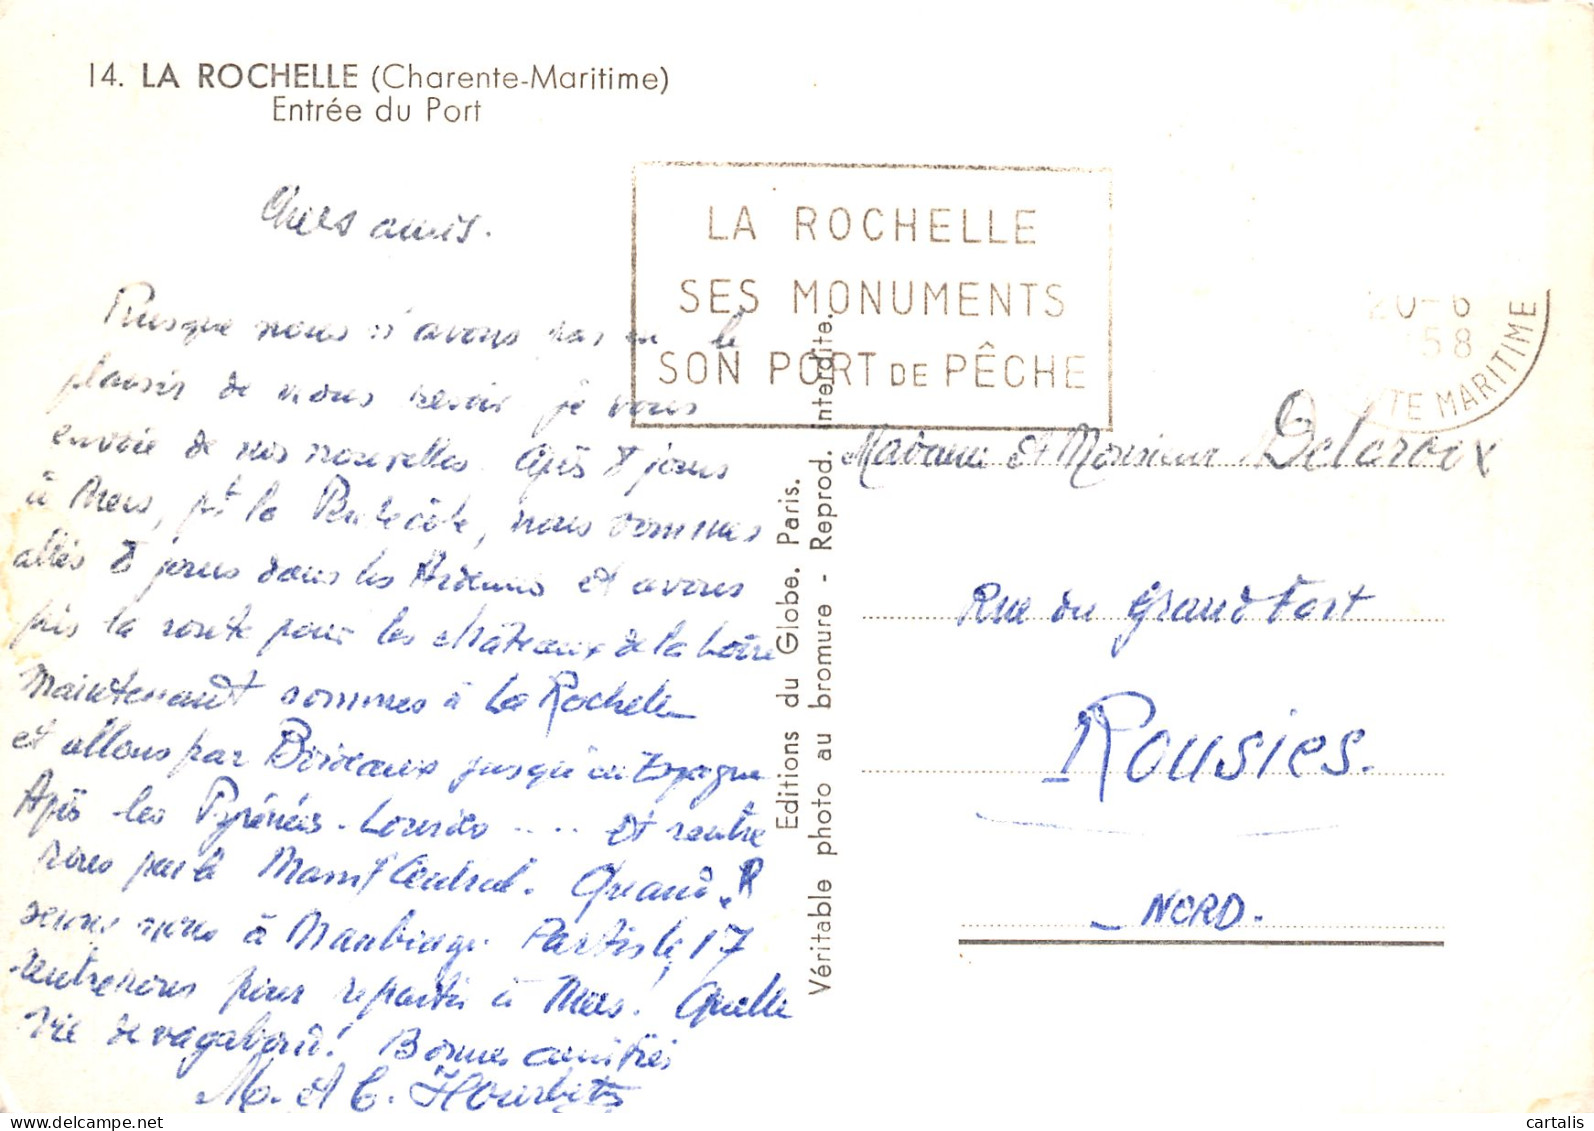 14. LA ROCHELLE (Charente-Maritime)
Entrée du Port
LA ROCHELLE
SES MONUMENTS
SON PORT DE PÊCHE
20-6
58
TE MARITIME
Chers amis.
Puisque nous n'avons pas eu le
plaisir de nous revoir je vous
envoie de nos nouvelles. Après 8 jours
à Mers, pt la Pentecôte, nous sommes
allés 8 jours dans les Ardennes et avons
pris la route pour les châteaux de la Loire
Maintenant sommes à La Rochelle
et allons par Bordeaux jusqu'en Espagne
Après les Pyrénées - Lourdes .... et rentre
rons par le Massif Central. Quand
serons nous à Maubeuge. Partis le 17
rentrerons pour repartir à Mers! Quelle
vie de vagabond! Bonnes amitiés
M. et C.
Editions du Globe. Paris.
Véritable photo au bromure - Reprod. interdite.
Madame et Monsieur Delaroix
Rue du Grand Fort
Rousies.
NORD.
cartalis